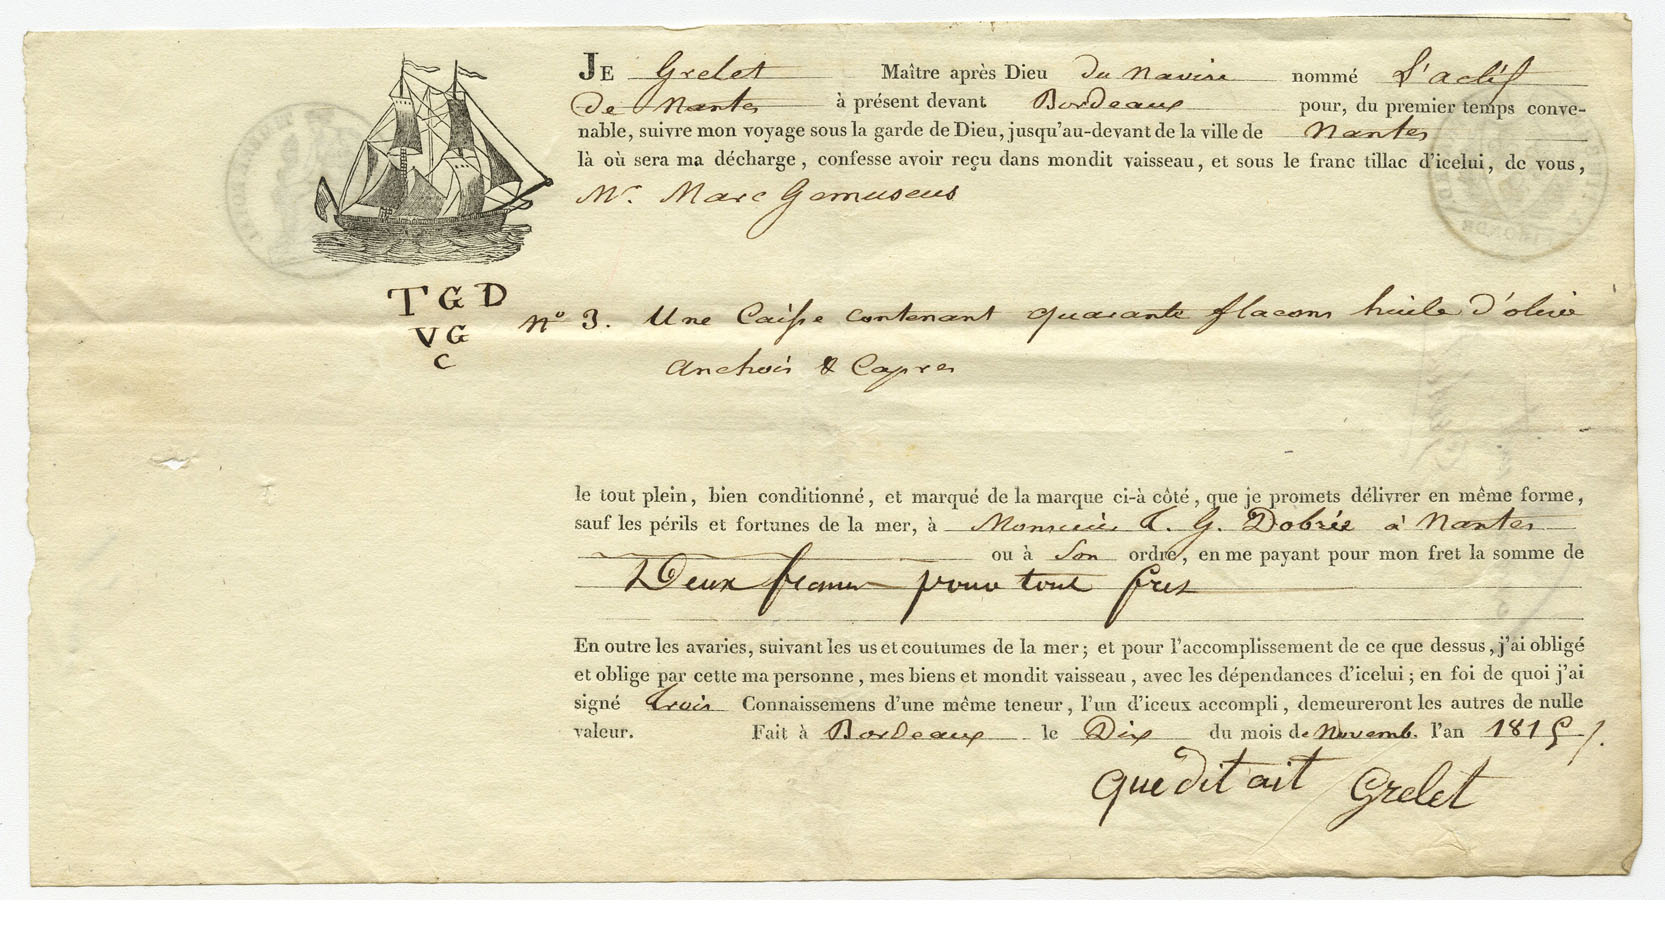 JE Grelet Maître après Dieu du Navire nommé L'actif
de Nantes à présent devant Bordeaux pour, du premier temps conve-
nable, suivre mon voyage sous la garde de Dieu, jusqu'au-devant de la ville de Nantes
là où sera ma décharge, confesse avoir reçu dans mondit vaisseau, et sous le franc tillac d'icelui, de vous,
Mr. Marc Gemuseus
TGD
VG
C
No 3. Une Caisse contenant quarante flacons huile d'olive
Anchois & Capres
le tout plein, bien conditionné, et marqué de la marque ci-à côté, que je promets délivrer en même forme,
sauf les périls et fortunes de la mer, à Monsieur T. G. Dobrée à Nantes
ou à Son ordre, en me payant pour mon fret la somme de
Deux francs pour tout fret
En outre les avaries, suivant les us et coutumes de la mer; et pour l'accomplissement de ce que dessus, j'ai obligé
et oblige par cette ma personne, mes biens et mondit vaisseau, avec les dépendances d'icelui; en foi de quoi j'ai
signé trois Connaissemens d'une même teneur, l'un d'iceux accompli, demeureront les autres de nulle
valeur. Fait à Bordeaux le Dix du mois de Novemb. l'an 1815
que dit ait Grelet